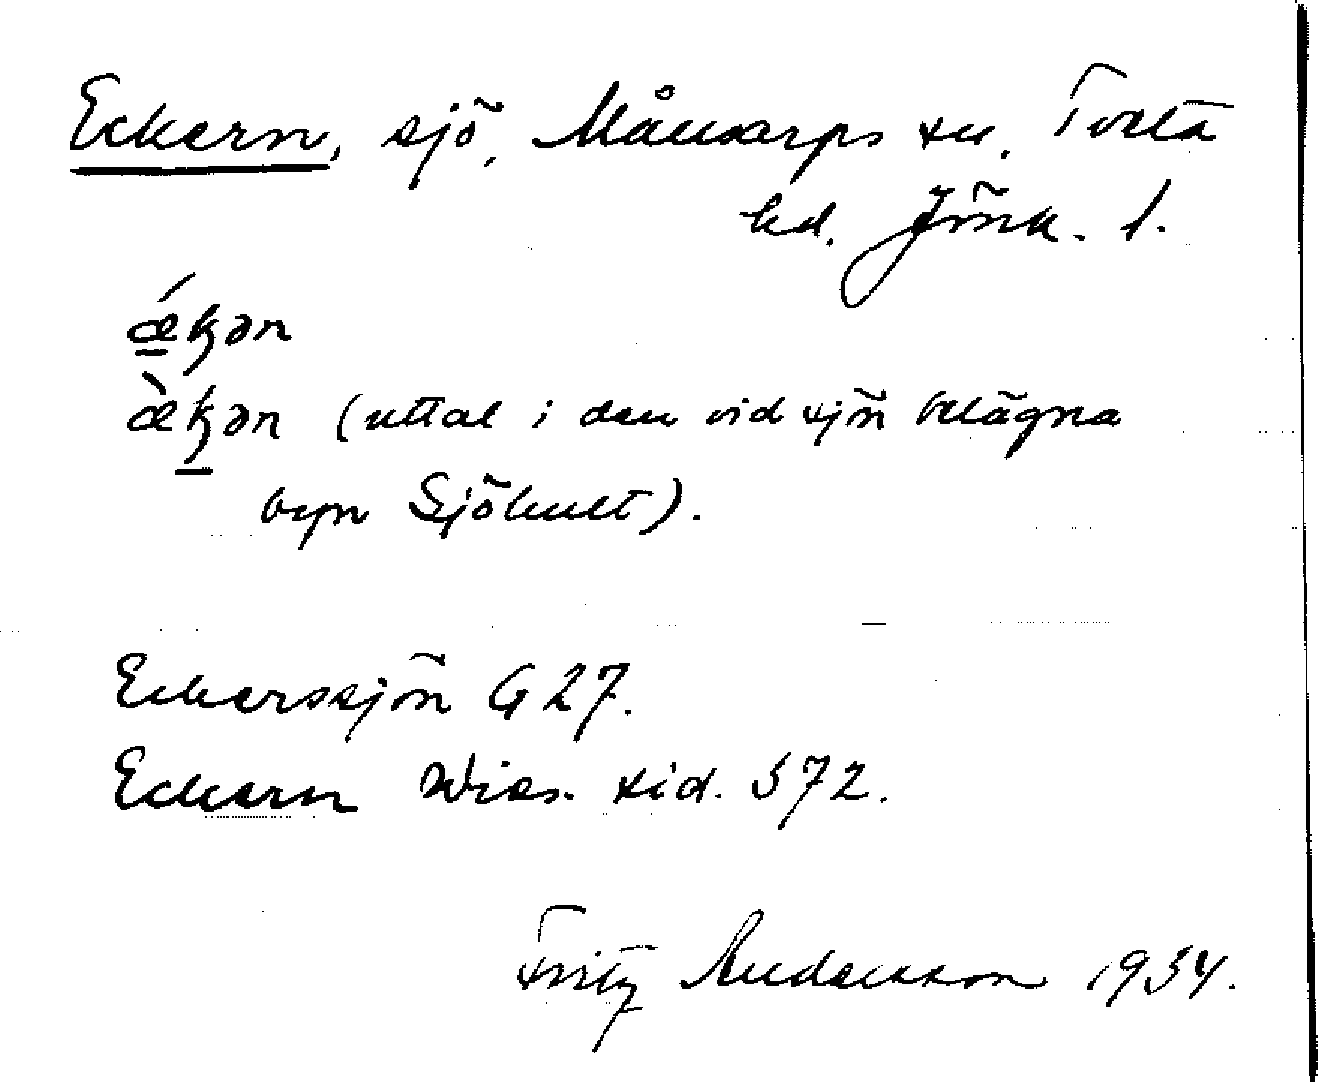 Eckern, sjö, Månsarps sn. Tveta
hd. Jönk. l.
ǽkən
æ̀kən (uttal i den vid sjön belägna
byn Sjöhult).
Eckerssjön G 27.
Eckern Wies. sid. 572.
Fritz Andersson 1934.